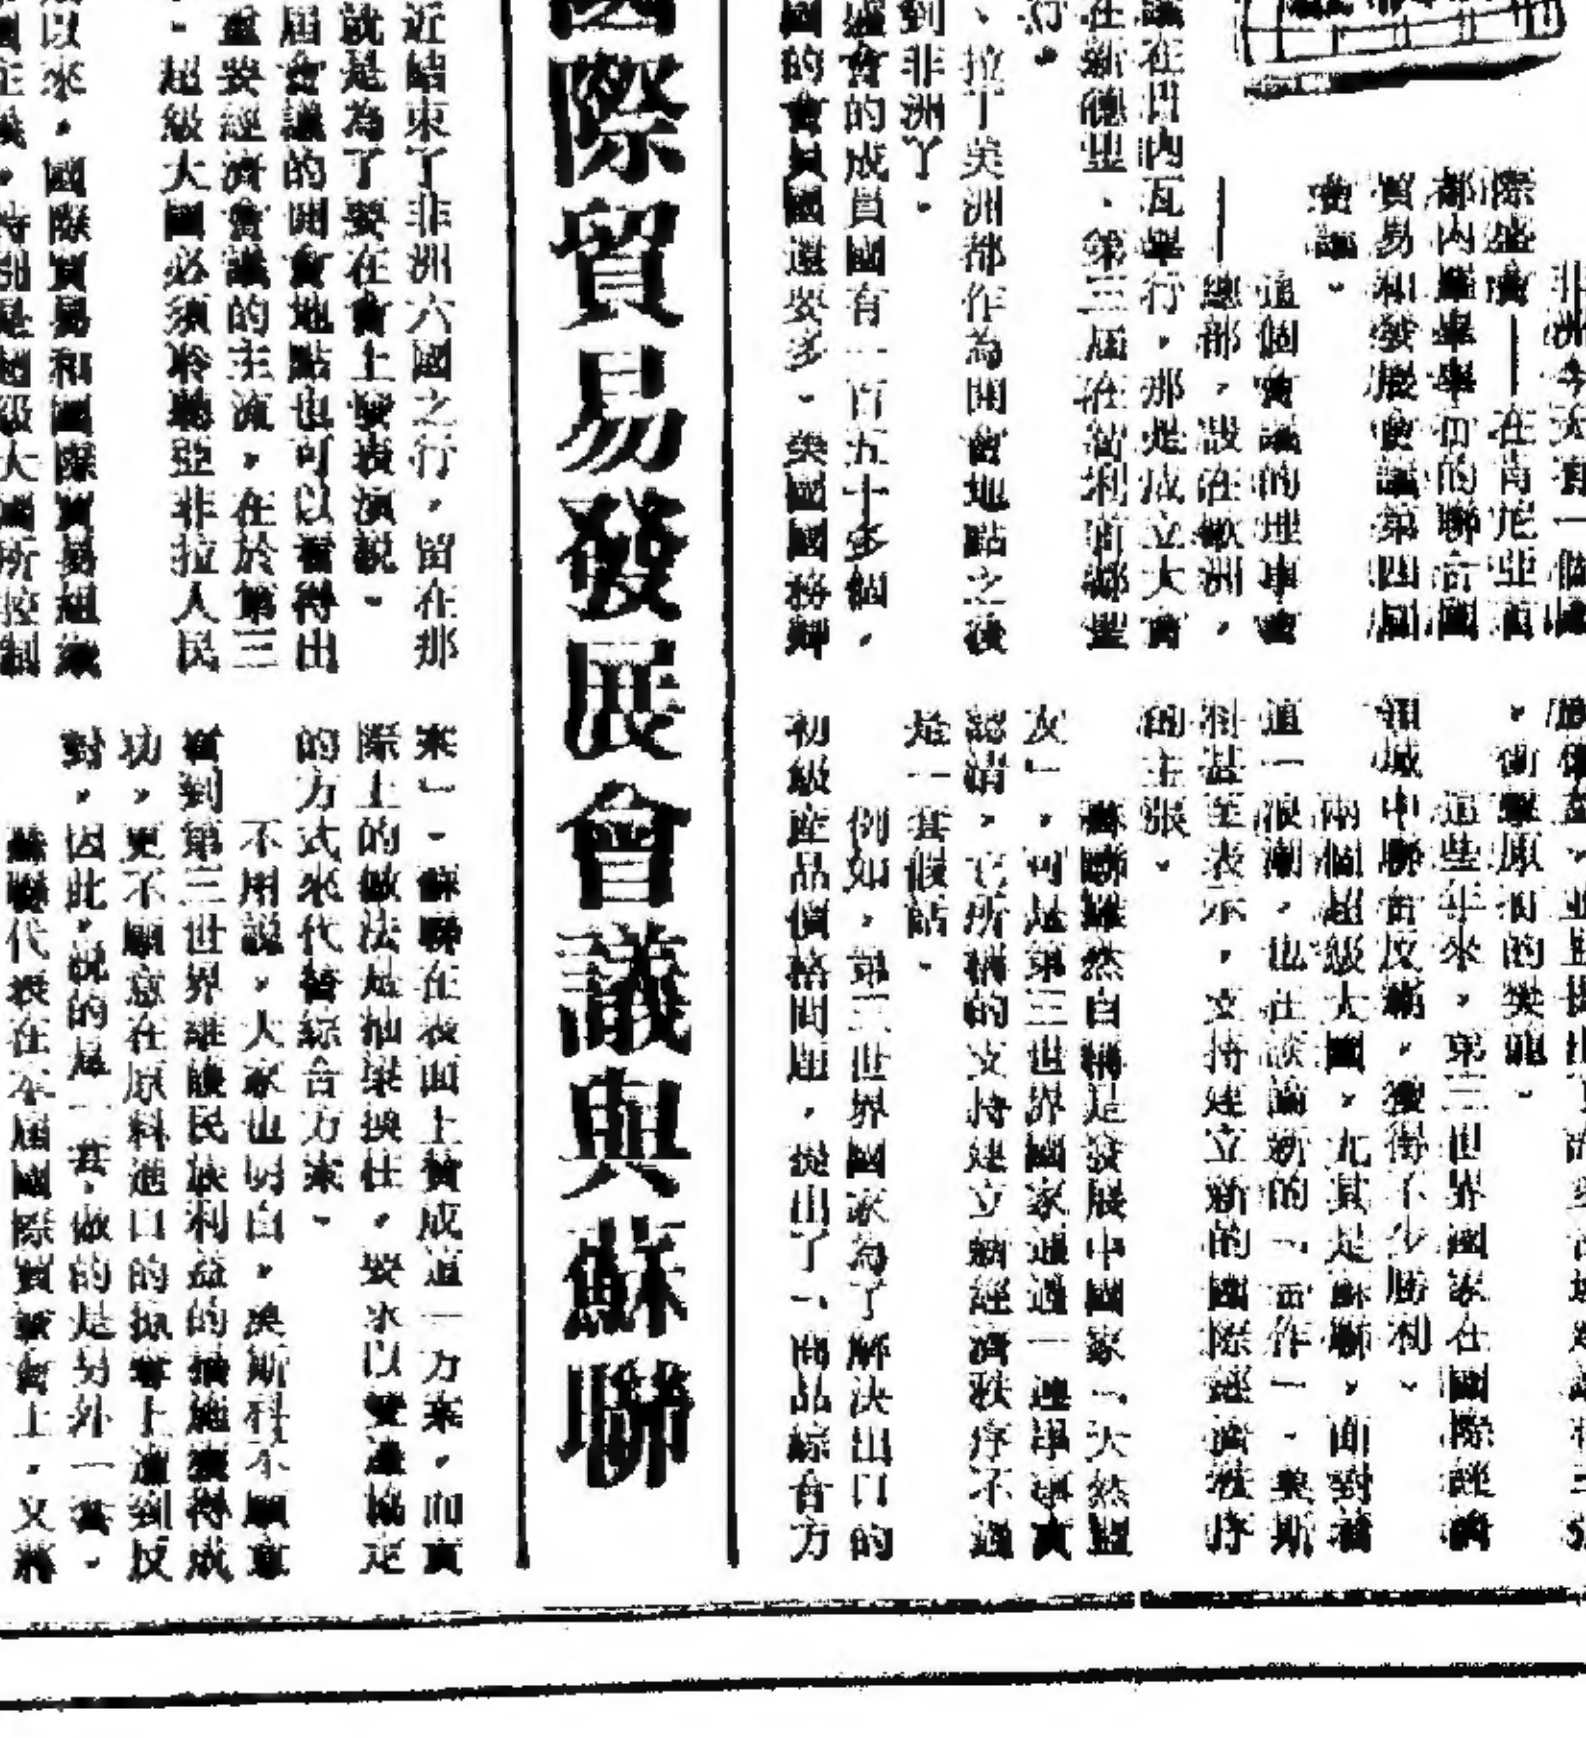 非洲今天有一個國
際盛會——在肯尼亞首
都內羅畢舉行的聯合國
貿易和發展會議第四屆
會議。
這個會議的理事會
——總部，設在歐洲，
議在日內瓦舉行，那是成立大會
在新德里、第三屆在智利首都聖
行。
、拉丁美洲都作為開會地點之後
到非洲了。
盛會的成員國有一百五十多個，
國的會員國還要多。美國國務卿
，衝擊原有的
這些年來，第三世界國家在國際經濟
領域中聯合反霸，獲得不少勝利。
兩個超級大國，尤其是蘇聯，面對着
這一浪潮，也在談論新的「合作」。莫斯
科甚至表示，支持建立新的國際經濟秩序
的主張。
蘇聯雖然自稱是發展中國家「天然盟
友」，可是第三世界國家通過一連串事實
認清，它所稱的支持建立新經濟秩序不過
是一套假話。
例如，第三世界國家為了解決出口的
初級產品價格問題，提出了「商品綜合方
國際貿易發展會議與蘇聯
近結束了非洲六國之行，留在那
就是為了要在會上發表演說。
屆會議的開會地點也可以看得出
重要經濟會議的主流，在於第三
。超級大國必須聆聽亞非拉人民
以來，國際貿易和國際貿易組織
特別是超級大國所控制
案」。蘇聯在表面上贊成這一方案，而實
際上的做法是抽梁換柱，要求以雙邊協定
的方式來代替綜合方案。
不用說，大家也明白，莫斯科不願意
看到第三世界維護民族利益的措施獲得成
功，更不願意在原料進口的掠奪上遭到反
對，因此，說的是一套，做的是另外一套。
蘇聯代表在本屆國際貿發會上，又將